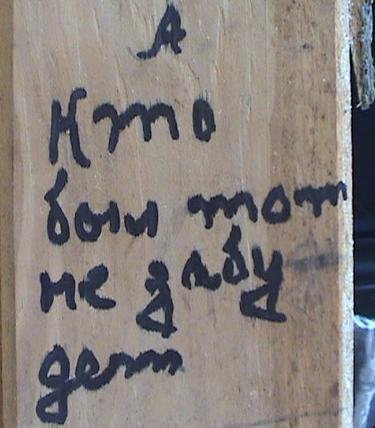 А
Кто
был тот
не забу
дет